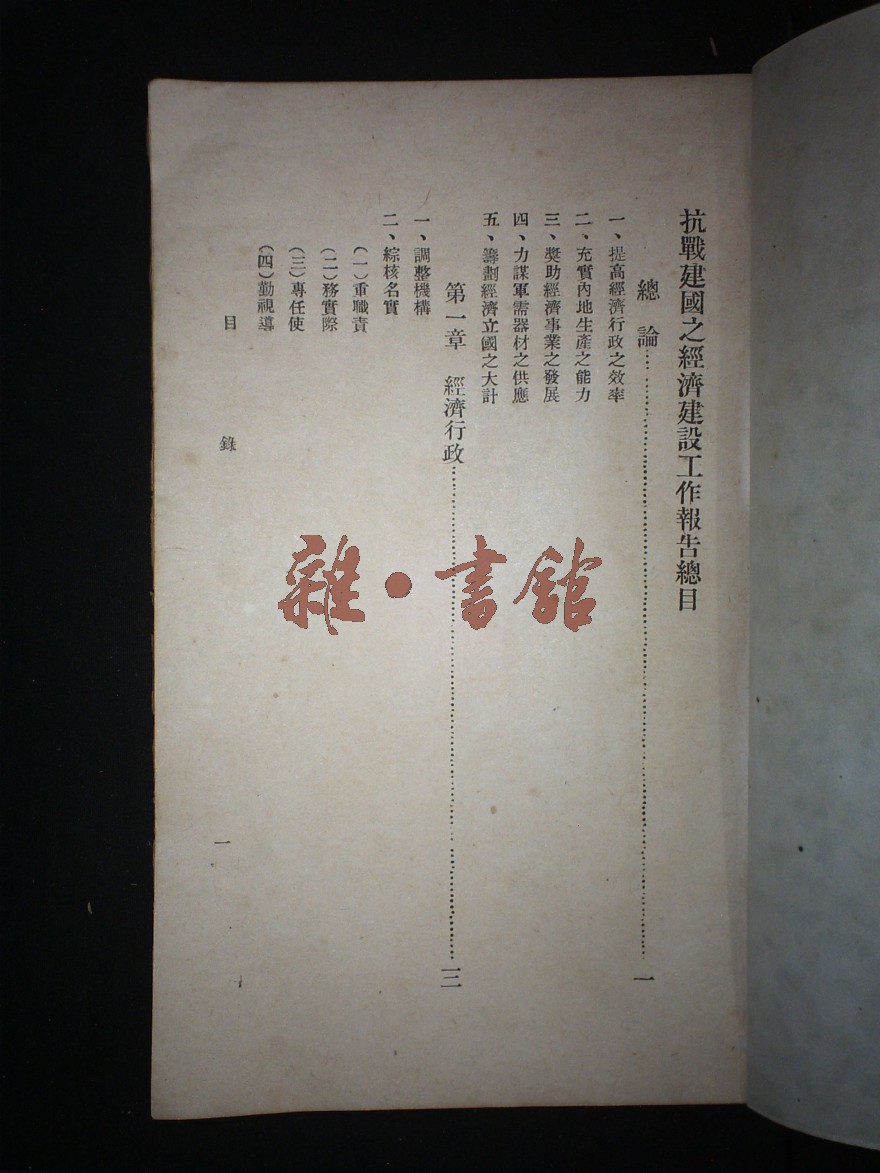 抗戰建國之經濟建設工作報告總目
總論……………………一
一、提高經濟行政之效率
二、充實內地生產之能力
三、獎助經濟事業之發展
四、力謀軍需器材之供應
五、籌劃經濟立國之大計
第一章　經濟行政……………………三
一、調整機構
二、綜核名實
(一)重職責
(二)務實際
(三)專任使
(四)勤視導
目錄　一
雜·書館